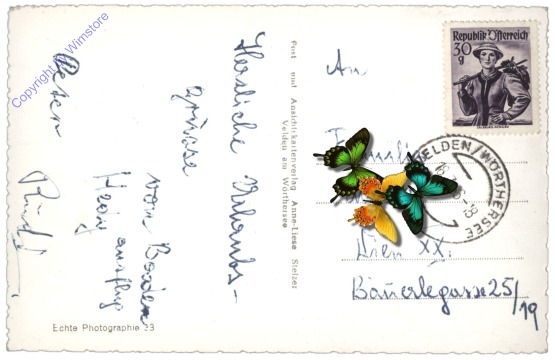 Herzliche Urlaubs-
grüsse
vom Baden
Copyright by Wimstore
Post und Ansichtkartenverlag Anne-Liese Stelzer
Velden am Wörthersee
Echte Photographie
Republik Österreich
30
g
VELDEN/WÖRTHERSEE
An
Familie
Wien XX.
Bäuerlegasse 25/
19